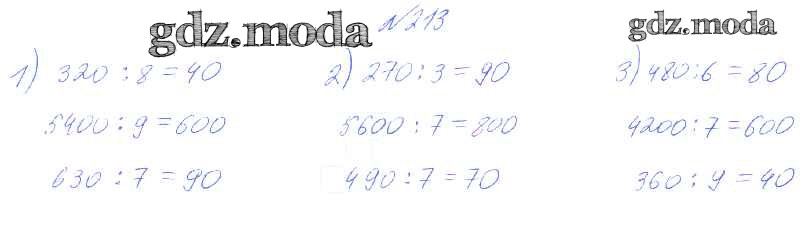 gdz.moda №213 gdz.moda
1) 320 : 8 = 40 2) 270 : 3 = 90 3) 480 : 6 = 80
5400 : 9 = 600 5600 : 7 = 800 4200 : 7 = 600
630 : 7 = 90 490 : 7 = 70 360 : 9 = 40